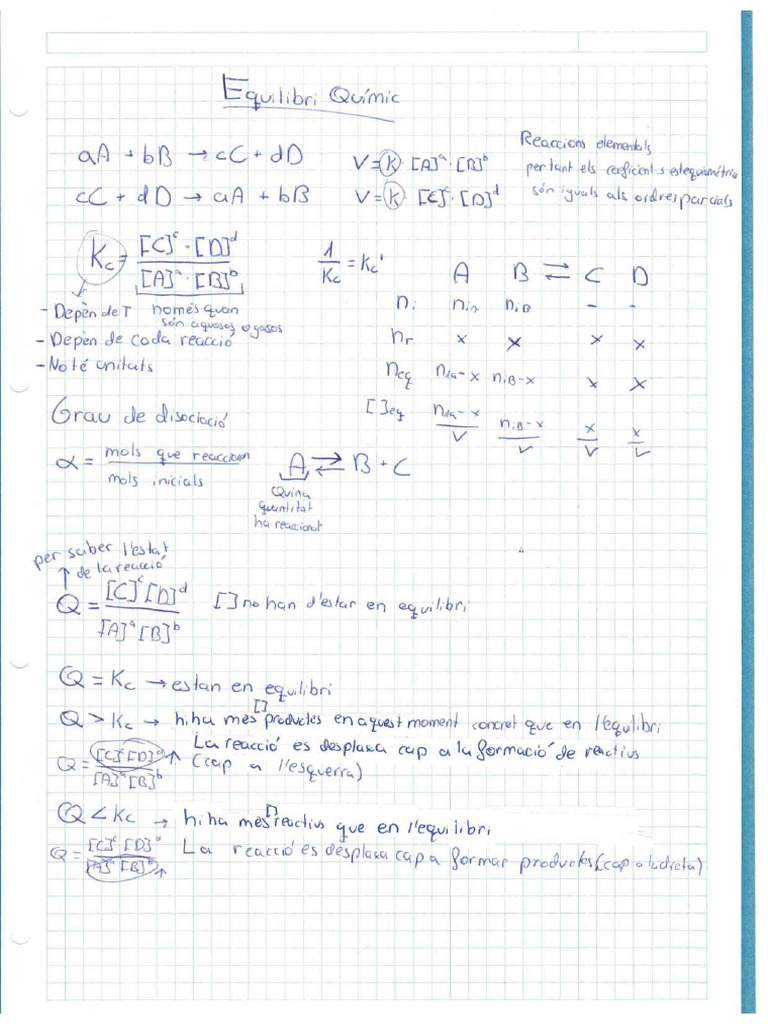 Equilibri Químic
aA + bB → cC + dD   V = K · [A]ᵃ · [B]ᵇ
cC + dD → aA + bB   V = K · [C]ᶜ · [D]ᵈ
Reaccions elementals
per tant els coeficients estequiomètric
són iguals als ordres parcials
Kc = [C]ᶜ · [D]ᵈ / [A]ᵃ · [B]ᵇ   1/Kc = Kc'
només quan
són aquosos o gasos
- Depèn de T
- Depèn de cada reacció
- No té unitats
A B ⇄ C D
ni niA niB - -
nr x x x x
neq n1A-x niB-x x x
[ ]eq n1A-x/V niB-x/V x/V x/V
Grau de disociació
α = mols que reaccionen / mols inicials   A ⇄ B + C
Quina
quantitat
ha reaccionat
per saber l'estat
de la reacció
Q = [C]ᶜ [D]ᵈ / [A]ᵃ [B]ᵇ   [ ] no han d'estar en equilibri
Q = Kc → estan en equilibri
Q > Kc → hi ha més [ ] productes en aquest moment concret que en l'equilibri
La reacció es desplaxa cap a la formació de reactius
(cap a l'esquerra)
Q = [C]ᶜ [D]ᵈ / [A]ᵃ [B]ᵇ ↑
Q < Kc → hi ha més [ ] reactius que en l'equilibri
Q = [C]ᶜ [D]ᵈ / [A]ᵃ [B]ᵇ ↑ La reacció es desplaxa cap a formar productes (cap a la dreta)